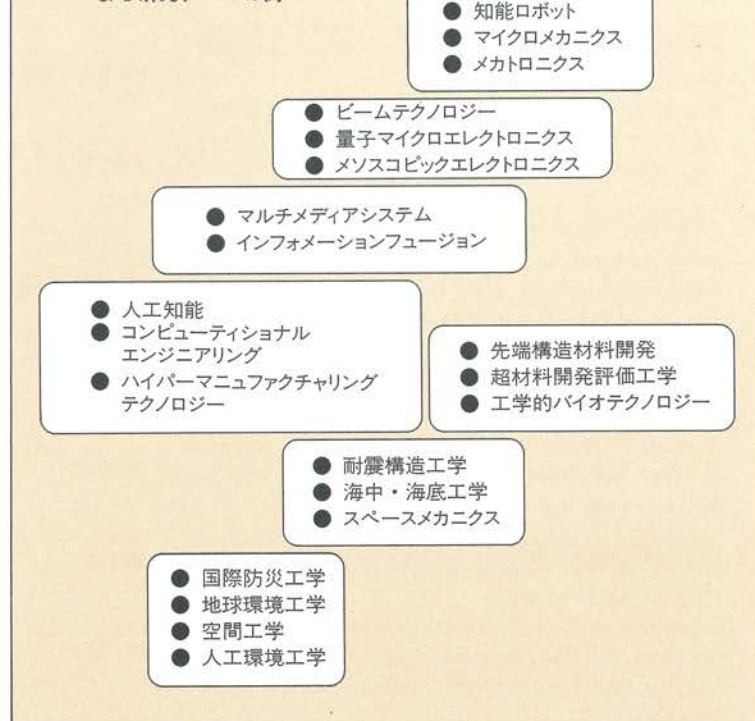 ● 知能ロボット
● マイクロメカニクス
● メカトロニクス
● ビームテクノロジー
● 量子マイクロエレクトロニクス
● メソスコピックエレクトロニクス
● マルチメディアシステム
● インフォメーションフュージョン
● 人工知能
● コンピューティショナル
エンジニアリング
● ハイパーマニュファクチャリング
テクノロジー
● 先端構造材料開発
● 超材料開発評価工学
● 工学的バイオテクノロジー
● 耐震構造工学
● 海中・海底工学
● スペースメカニクス
● 国際防災工学
● 地球環境工学
● 空間工学
● 人工環境工学